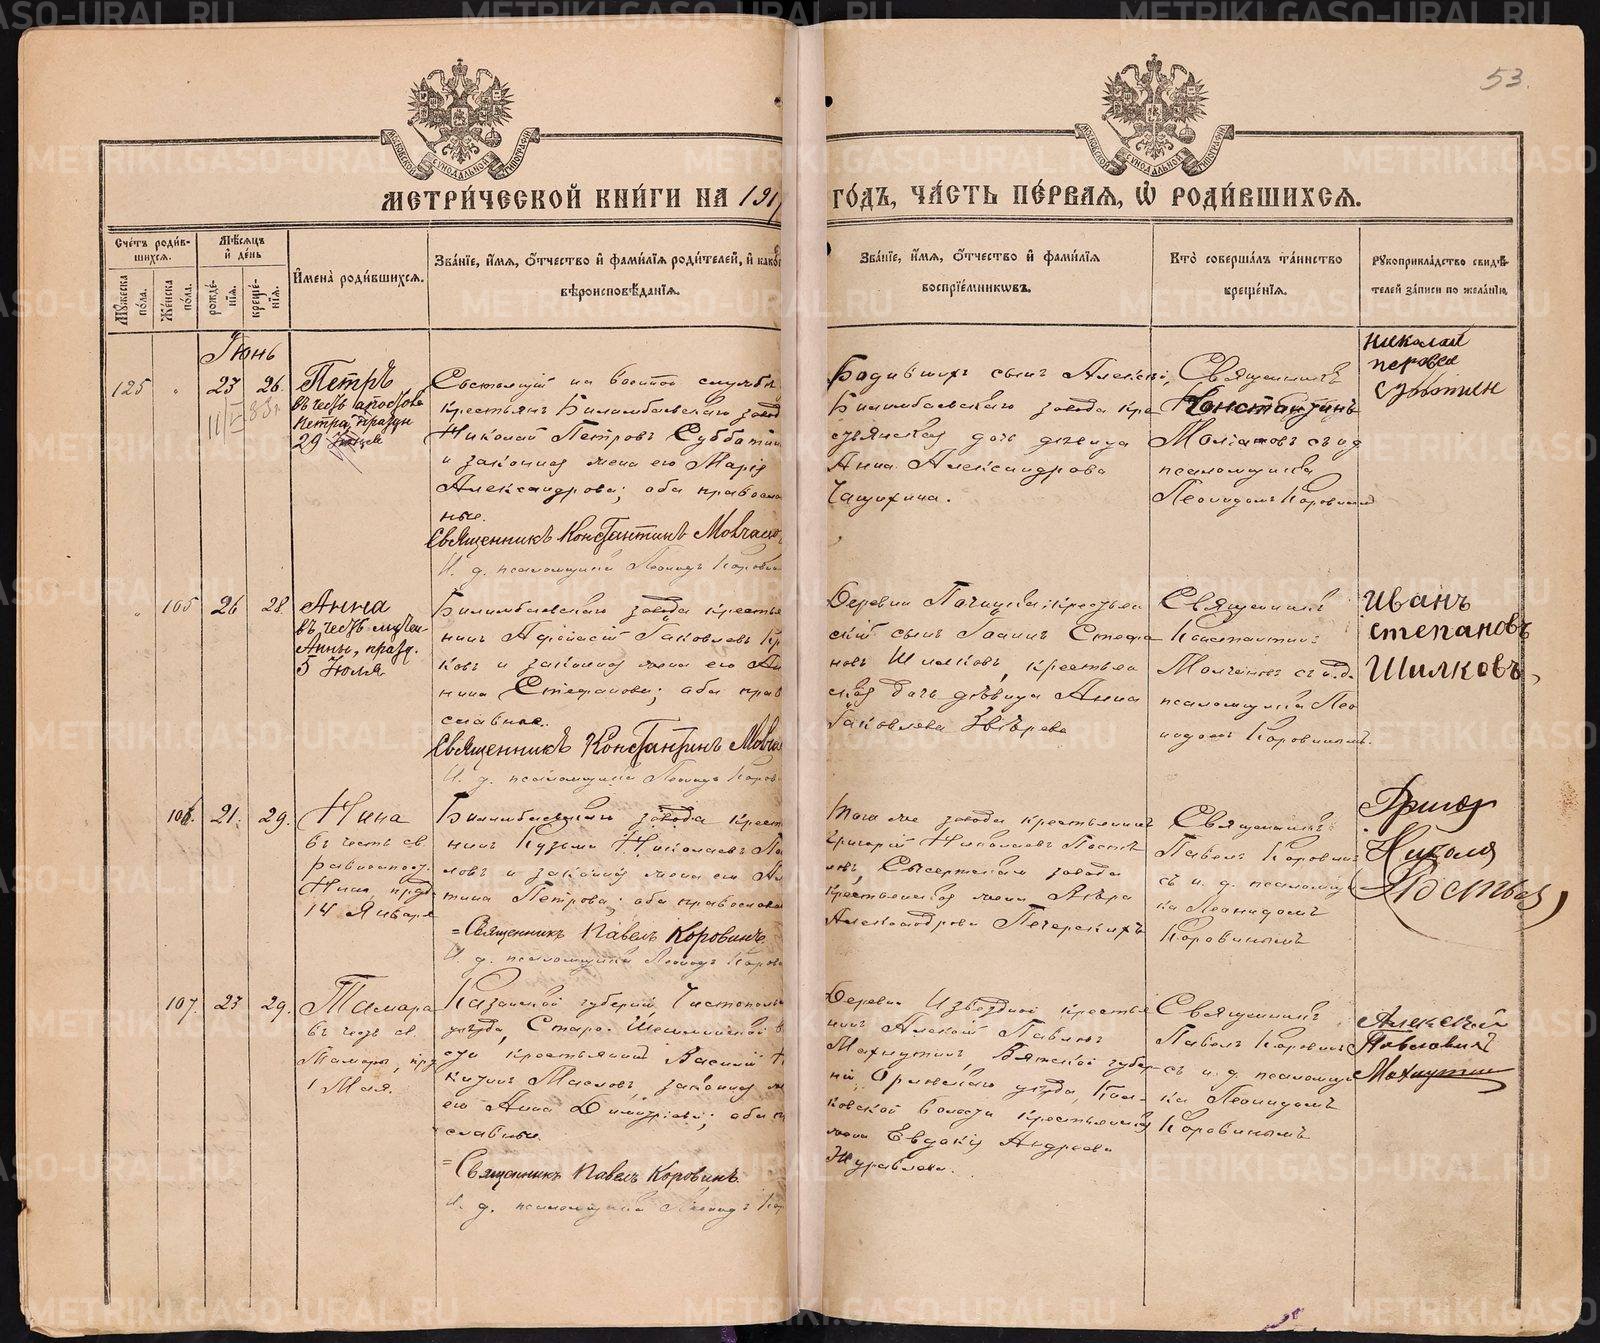 53.
МЕТРИ́ЧЕСКОЙ КНИ́ГИ НА 191 ГО́ДЪ, ЧА́СТЬ ПЕ́РВАЯ, Ѡ҆ РОДИ́ВШИХСЯ.
Сче́тъ роди́в-
шихся.
Мꙋ́жеска по́ла.
Же́нска по́ла.
Мѣ́сяцъ и҆ де́нь
рожде́-
нія.
креще́-
нія.
И҆мена̀ роди́вшихся.
Зва́ніе, и҆́мя, о҆́тчество и҆ фами́лія роди́телей, и҆ како́г
вѣроисповѣ́данія.
Зва́ніе, и҆́мя, о҆́тчество и҆ фами́лія
воспріе́мниковъ.
Кто̀ соверша́лъ та́инство
креще́нія.
Рꙋкоприкла́дство свидѣ́-
телей за́писи по жела́нію.
Іюнь
125 " 23 26.
Петръ
въ честь апостола
Петра, праздн
29
Состоящій на военной службѣ
крестьян. Билимбаевскаго завод
Николай Петровъ Субботин
и законная жена его Марія
Александрова; оба православ
ные.
Священникъ Константинъ
И. д. псаломщика Леонидъ Коровин
сынъ Алексѣй,
Билимбаевскаго завода кре
стьянская дочь дѣвица
Анна Александрова
Чащихина.
Священникъ
Константинъ
съ и д
псаломщика
Леонидомъ Коровиным
Николай
Петровъ
" 105 26 28.
Анна
въ честь мучен.
Анны, празд.
5 Іюля
Билимбаевскаго завода крестья
нинъ Афонасій Яковлевъ
ковъ и законная жена его
нина Стефанова; оба прав
славные.
Священникъ Константинъ
И. д. псаломщика Леонидъ Коров
Деревни крестьян
скій сынъ Іоаннъ Стефа
новъ Шилковъ, крестьян
ская дочь дѣвица Анна
Яковлева Звѣрева
Священникъ
Константинъ
съ и.д.
псаломщика Лео
нидомъ Коровинымъ.
Иванъ
Степановъ
Шилковъ,
106. 21. 29.
Нина
въ честь св.
равноапост.
Нины праз.
14 Января
Билимбаевскаго завода крест
нинъ Кузьма Николаевъ По
ловъ и законная жена его
тина Петрова; оба православ
=Священникъ Павелъ Коровинъ.
И. д. псаломщика Леонидъ Коров
Того же завода крестьянинъ
Григорій Николаевъ Поспѣ
ловъ, Сысертскаго завода
крестьянская жена
Александрова Печерскихъ
Священникъ
Павелъ Коровинъ
съ и. д. псаломщи
ка Леонидомъ
Коровинымъ
Григор
Никола
107. 23 29.
Тамара
въ честь св.
Тамары, пр.
1 Мая.
Казанской губерніи, Чистополь
уѣзда, Старо-Шешминской в
сти крестьянинъ Василій
Масловъ, законная ж
его Анна Димитріева; оба п
славные.
=Священникъ Павелъ Коровинъ.
И. д. псаломщика Леонидъ Ко
Деревни Извѣздной крестья
нинъ Алексѣй Павловъ
Махнутинъ, Вятской губер
ніи, Орловскаго уѣзда,
ковской волости крестьянская
жена Евдокія Андреева
Журавлева.
Священникъ
Павелъ Коровинъ
съ и. д. псаломщи
ка Леонидомъ
Коровинымъ
Алексѣй
Павловичъ
Махнутин
METRIKI.GASO-URAL.RU